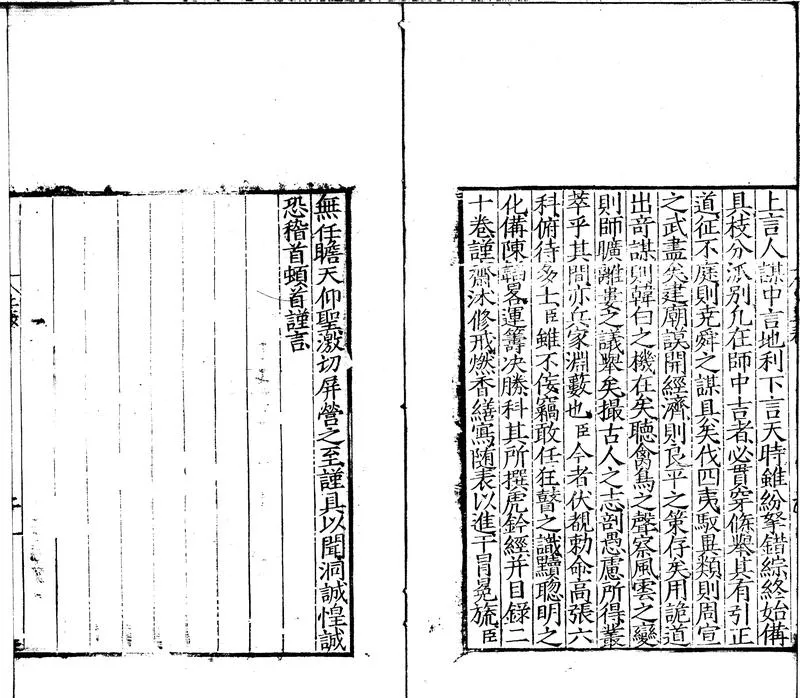 上言人謀中言地利下言天時雖紛拏錯綜終始備
具枝分派別凡在師中吉者必貫穿條舉其有引正
道征不庭則堯舜之謀具矣伐四夷馭異類則周宣
之武盡矣建廟謨開經濟則良平之策存矣用詭道
出奇謀則韓白之機在矣聽禽鳥之聲察風雲之變
則師曠離婁之議舉矣撮古人之志剖愚慮所得叢
萃乎其間亦兵家淵藪也臣今者伏覩勑命高張六
科俯待多士臣雖不佞竊敢任狂瞽之識黷聰明之
化備陳韜畧運籌决勝科其所撰虎鈐經并目錄二
十卷謹齋沐修戒燃香繕寫随表以進干冒冕旒臣
無任瞻天仰聖激切屏營之至謹具以聞洞誠惶誠
恐稽首頓首謹言